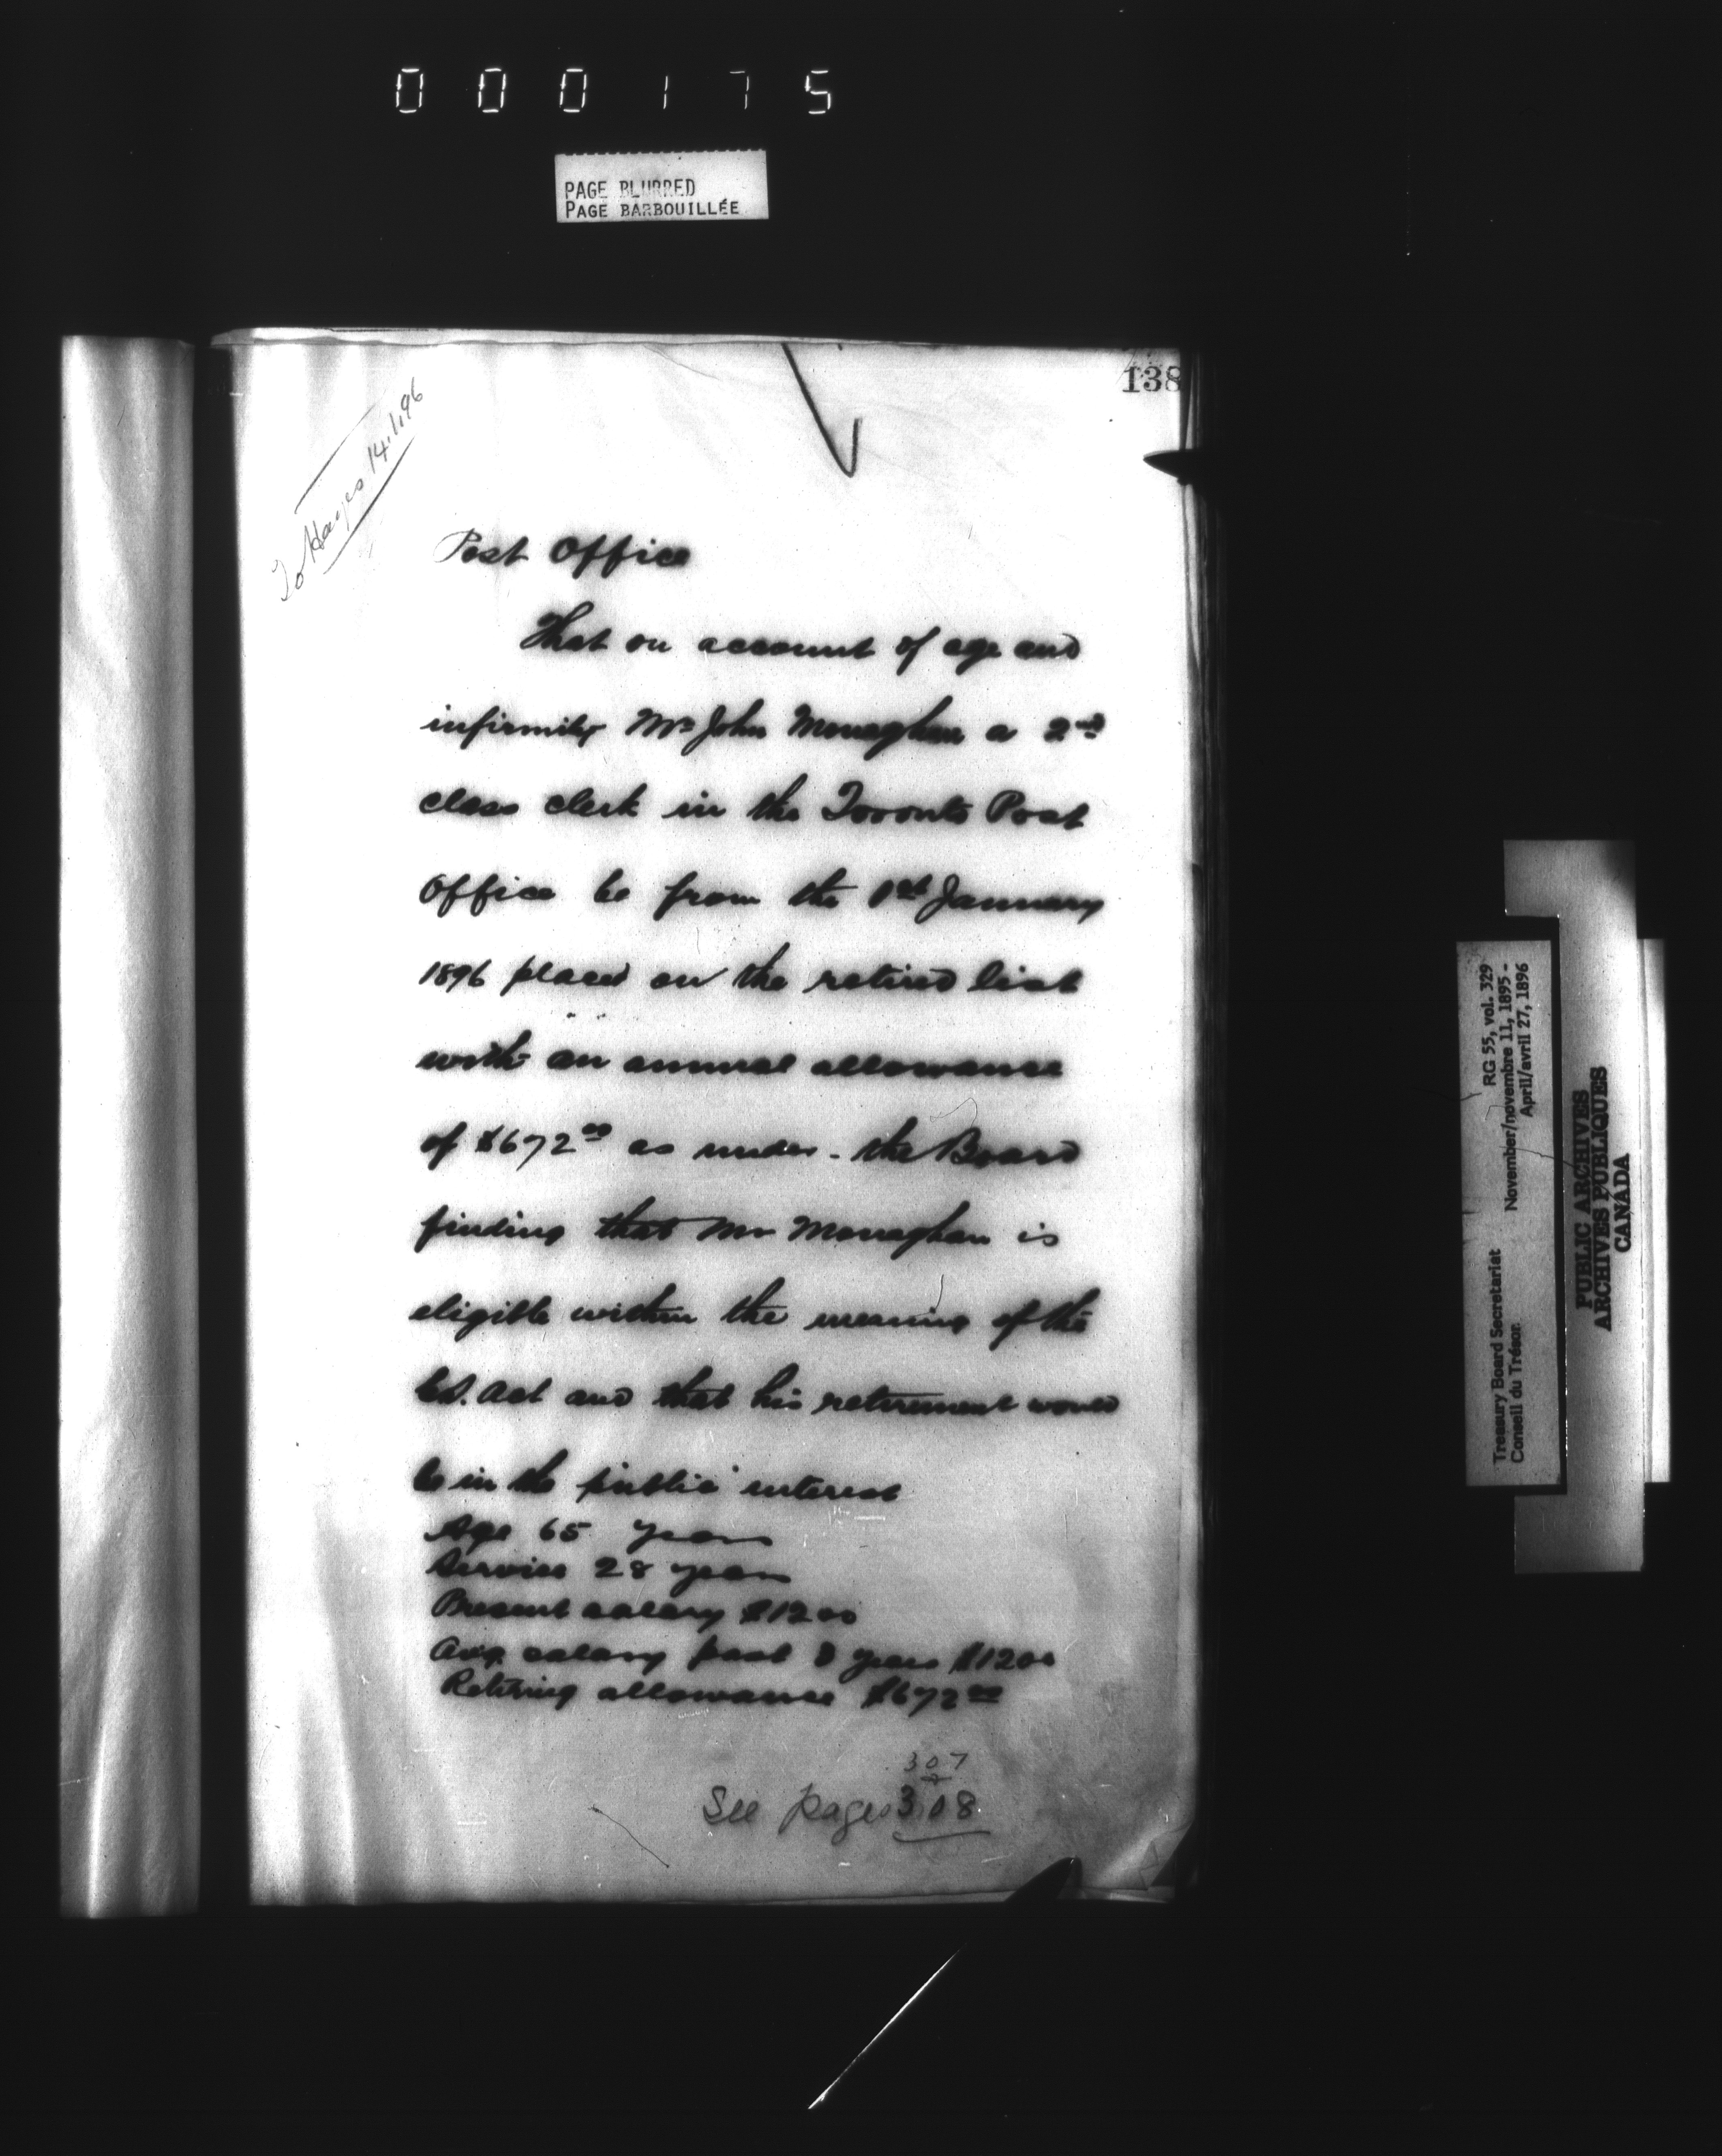 000175
PAGE BLURRED
PAGE BARBOUILLÉE
138
To Hayes 14/1/96
Post Office
That on account of age and
infirmity Mr John Monaghan a 2nd
class clerk in the Toronto Post
Office be from the 1st January
1896 placed on the retired list
with an annual allowance
of $672 00 as under - the Board
finding that Mr Monaghan is
eligible within the meaning of the
C.S. Act and that his retirement would
be in the public interest
Age 65 years
Service 28 years
Present salary $1200
Avg. salary past 3 years $1200
Retiring allowance $672 00
307
+
See pages 308
Treasury Board Secretariat RG 55, vol. 329
Conseil du Trésor November/novembre 11, 1895 -
April/avril 27, 1896
PUBLIC ARCHIVES
ARCHIVES PUBLIQUES
CANADA